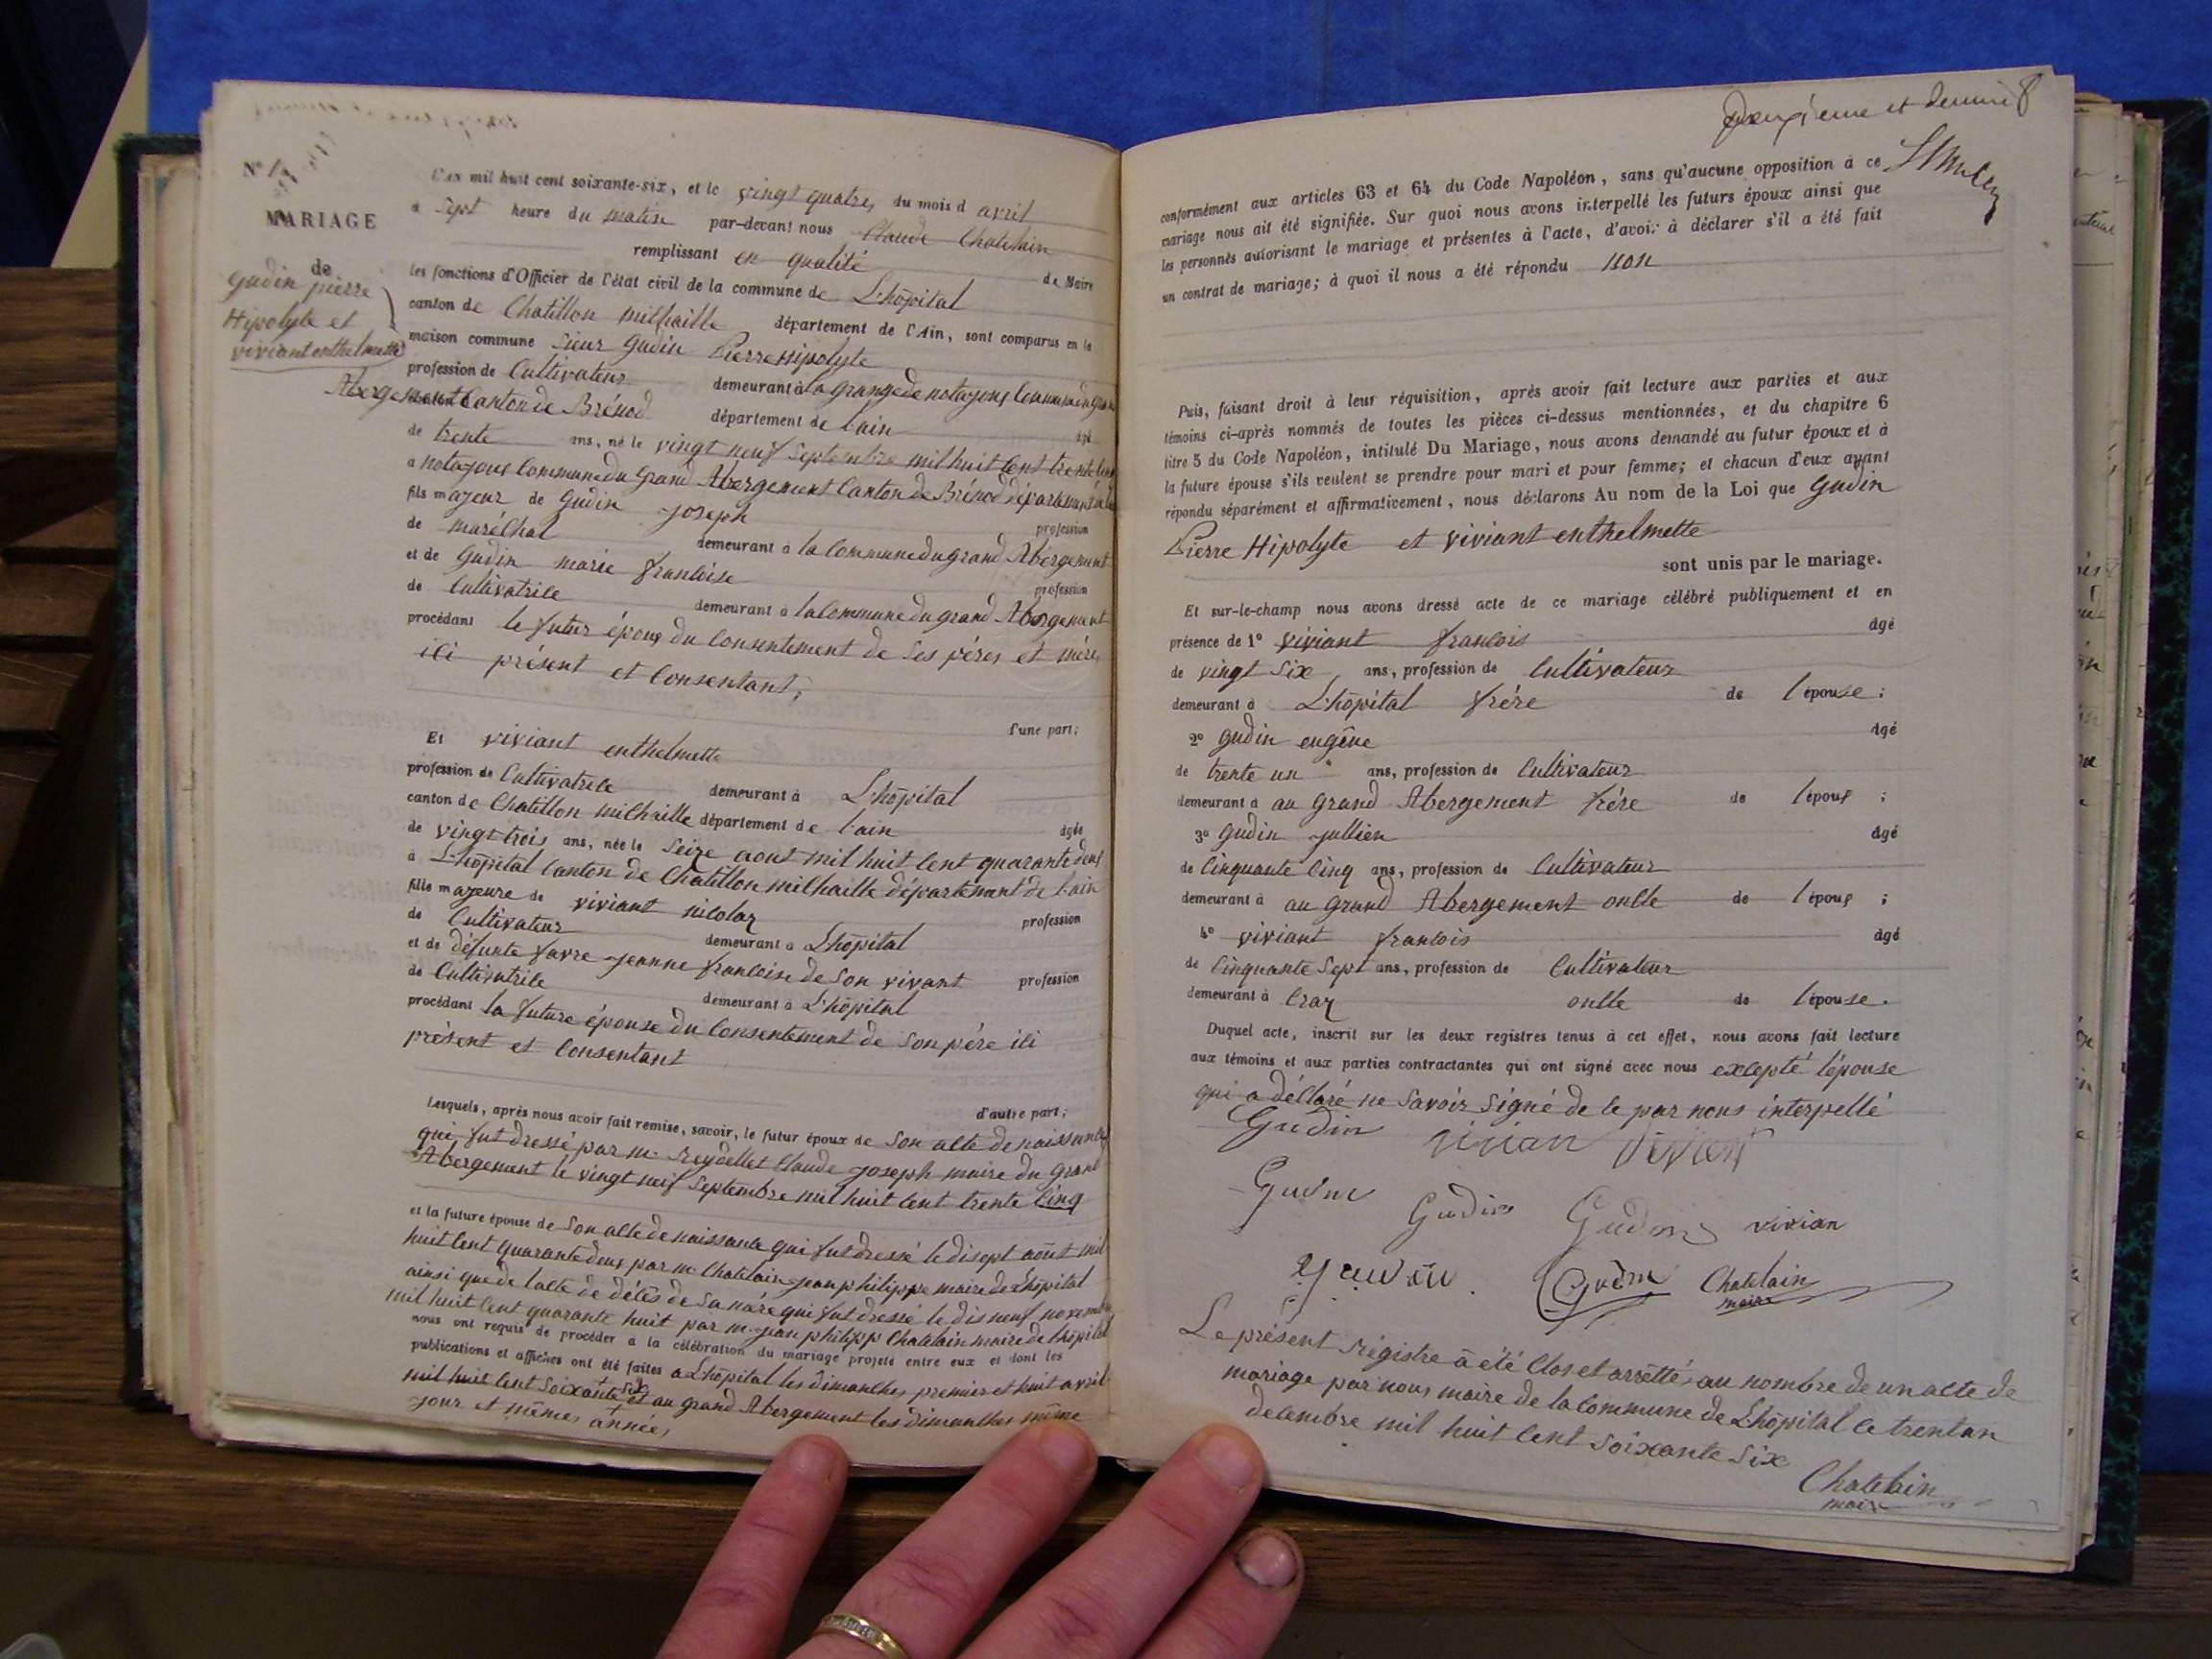 N° 1
MARIAGE
de
gudin pierre
Hipolyte et
viviant enthelmette
L'an mil huit cent soixante-six, et le vingt quatre du mois d avril
a sept heure du matin par-devant nous Claude Chatelain
remplissant en qualité de Maire
les fonctions d'Officier de l'état civil de la commune de L'hôpital
canton de Chatillon milhaille département de l'Ain, sont comparus en la
maison commune sieur gudin Pierre Hipolyte
profession de Cultivateur demeurant à la grange de notayons Commune du grand
Abergement Canton de Brénod département de l'ain âgé
de trente ans, né le vingt neuf Septembre mil huit Cent trente Cinq
a notayons Commune du grand Abergement Canton de Brénod département
fils majeur de gudin joseph profession
de maréchal demeurant a la Commune du grand Abergement
et de gudin marie francoise profession
de Cultivatrice demeurant à la Commune du grand Abergement
procédant le futur époux du Consentement de Ses péres et mére
ici présent et Consentant,
d'une part;
Et viviant enthelmette
profession de Cultivatrice demeurant à L'hôpital
canton de Chatillon milhaille département de l'ain âgée
de vingt-trois ans, née le Seize aout mil huit Cent quarante deux
à L'hôpital Canton de Chatillon milhaille département de l'ain
fille majeure de viviant nicolas profession
de Cultivateur demeurant a L'hôpital
et de défunte favre jeanne francoise de Son vivant profession
de Cultivatrice demeurant a L'hôpital
procédant la future épouse du Consentement de Son pére ici
présent et Consentant
d'autre part;
Lesquels, après nous avoir fait remise, savoir, le futur époux de Son acte de naissance
qui fut dressé par m. Reydellet Claude joseph maire du grand
Abergement le vingt neuf Septembre mil huit Cent trente Cinq
et la future épouse de Son acte de naissance qui fut dressé le disept août mil
huit Cent quarante deux par m. Chatelain jean philippe maire de L'hôpital
ainsi que de l'acte de décès de Sa mére qui fut dressé le dis neuf novembre
mil huit Cent quarante huit par m. jean philipp Chatelain maire de l'hôpital
nous ont requis de procéder a la célébration du mariage projeté entre eux et dont les
publications et affiches ont été faites a L'hôpital les dimanches premier et huit avril
mil huit Cent Soixante six et au grand Abergement les dimanches même
jour et mêmes année
Deuxieme et dernier 8
conformément aux articles 63 et 64 du Code Napoléon, sans qu'aucune opposition à ce
mariage nous ait été signifiée. Sur quoi nous avons interpellé les futurs époux ainsi que
les personnes autorisant le mariage et présentes à l'acte, d'avoir à déclarer s'il a été fait
un contrat de mariage; à quoi il nous a été répondu non
Puis, faisant droit à leur réquisition, après avoir fait lecture aux parties et aux
témoins ci-après nommés de toutes les pièces ci-dessus mentionnées, et du chapitre 6
titre 5 du Code Napoléon, intitulé Du Mariage, nous avons demandé au futur époux et à
la future épouse s'ils veulent se prendre pour mari et pour femme; et chacun d'eux ayant
répondu séparément et affirmativement, nous déclarons Au nom de la Loi que gudin
Pierre Hipolyte et viviant enthelmette
sont unis par le mariage.
Et sur-le-champ nous avons dressé acte de ce mariage célébré publiquement et en
présence de 1° viviant francois âgé
de vingt Six ans, profession de Cultivateur
demeurant à L'hôpital frére de l'épouse;
2° gudin eugêne âgé
de trente un ans, profession de Cultivateur
demeurant à au grand Abergement frére de l'époux;
3° gudin jullien âgé
de Cinquante Cinq ans, profession de Cultivateur
demeurant à au grand Abergement oncle de l'époux;
4° viviant francois âgé
de Cinquante Sept ans, profession de Cultivateur
demeurant à Craz oncle de l'épouse.
Duquel acte, inscrit sur les deux registres tenus à cet effet, nous avons fait lecture
aux témoins et aux parties contractantes qui ont signé avec nous excepté l'épouse
qui a déclaré ne Savoir Signé de ce par nous interpellé
Gudin vivian
Gudin
Gudin Gudin vivian
Gudin Chatelain
maire
Le présent régistre à été Clos et arrêtté au nombre de un acte de
mariage par nous maire de la Commune de L'hôpital ce trentun
décembre mil huit Cent Soixante Six
Chatelain
maire